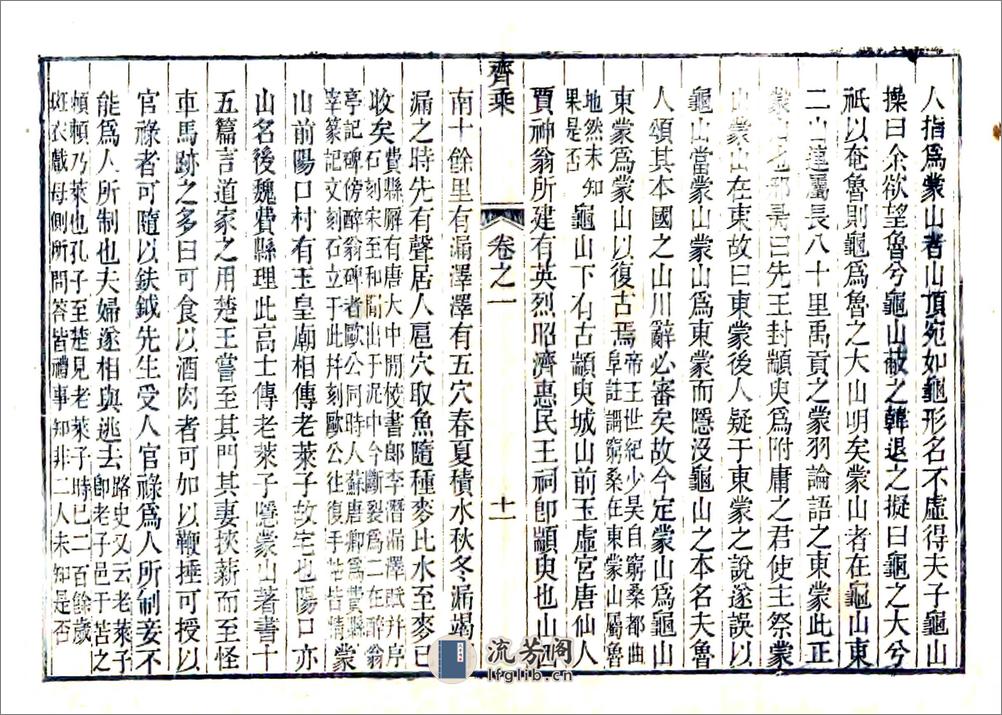 人指爲蒙山者山頂宛如龜形名不虛得夫子龜山
操曰余欲望魯兮龜山蔽之韓退之擬曰龜之大兮
祇以奄魯則龜爲魯之大山明矣蒙山者在龜山東
二山連屬長八十里禹貢之蒙羽論語之東蒙此正
蒙山也邢昺曰先王封顓臾爲附庸之君使主祭蒙
山蒙山在東故曰東蒙後人疑于東蒙之說遂誤以
龜山當蒙山蒙山爲東蒙而隱沒龜山之本名夫魯
人頌其本國之山川辭必審矣故今定蒙山爲龜山
東蒙爲蒙山以復古焉帝王世紀少昊自窮桑都曲阜註謂窮桑在東蒙山屬魯
地然未知果是否龜山下有古顓臾城山前玉虛宮唐仙人
賈神翁所建有英烈昭濟惠民王祠卽顓臾也山
齊乘
卷之一
十一
南十餘里有漏澤澤有五穴春夏積水秋冬漏竭
漏之時先有聲居人扈穴取魚隨種麥比水至麥已
收矣費縣廨有唐大中間校書郎李潛漏澤賦并序石刻宋至和間出于泥中今斷裂爲二在醉翁
亭記碑傍醉翁碑者歐公同時人蘇唐卿爲費縣宰篆記文刻石立于此并刻歐公往復手帖皆精蒙
山前陽口村有玉皇廟相傳老萊子故宅也陽口亦
山名後魏費縣理此高士傳老萊子隱蒙山著書十
五篇言道家之用楚王嘗至其門其妻挾薪而至怪
車馬跡之多曰可食以酒肉者可加以鞭捶可授以
官祿者可隨以鈇鉞先生受人官祿爲人所制妾不
能爲人所制也夫婦遂相與逃去路史又云老萊子卽老子邑于苦之
賴賴乃萊也孔子至楚見老萊子時已二百餘歲
斑衣戲母側所問答皆禮事知非二人未知是否
流芳閣
lfglib.cn